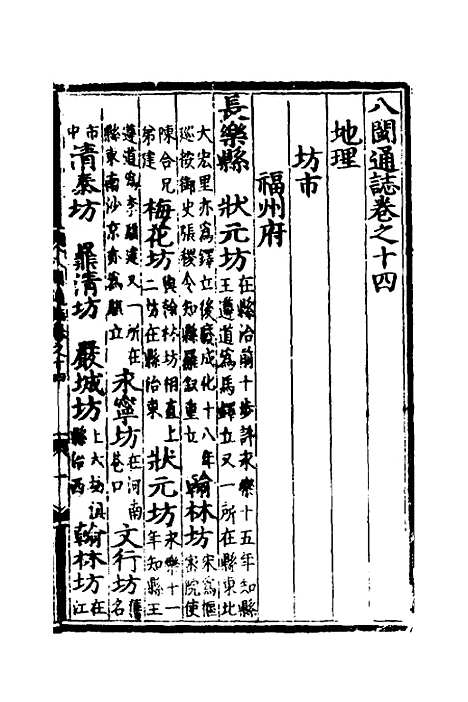 八閩通誌卷之十四
地理
坊市
福州府
長樂縣 狀元坊 在縣治前十步許永樂十五年知縣
王遵道為馬鐸立又一所在縣東北
大宏里亦為鐸立後廢成化十八年
巡按御史張稷令知縣羅叙重立 翰林坊 宋為樞
密院使
陳合兄
弟建 梅花坊 與翰林坊相直上
二坊在縣治東 狀元坊 永樂十一
年知縣王
遵道為李騏建又一所在
縣東南沙京亦為騏立 永寧坊 在河南
巷口 文行坊 舊
名
市
中 清泰坊 清坊 嚴城坊 上
縣治西 翰林坊 在
江